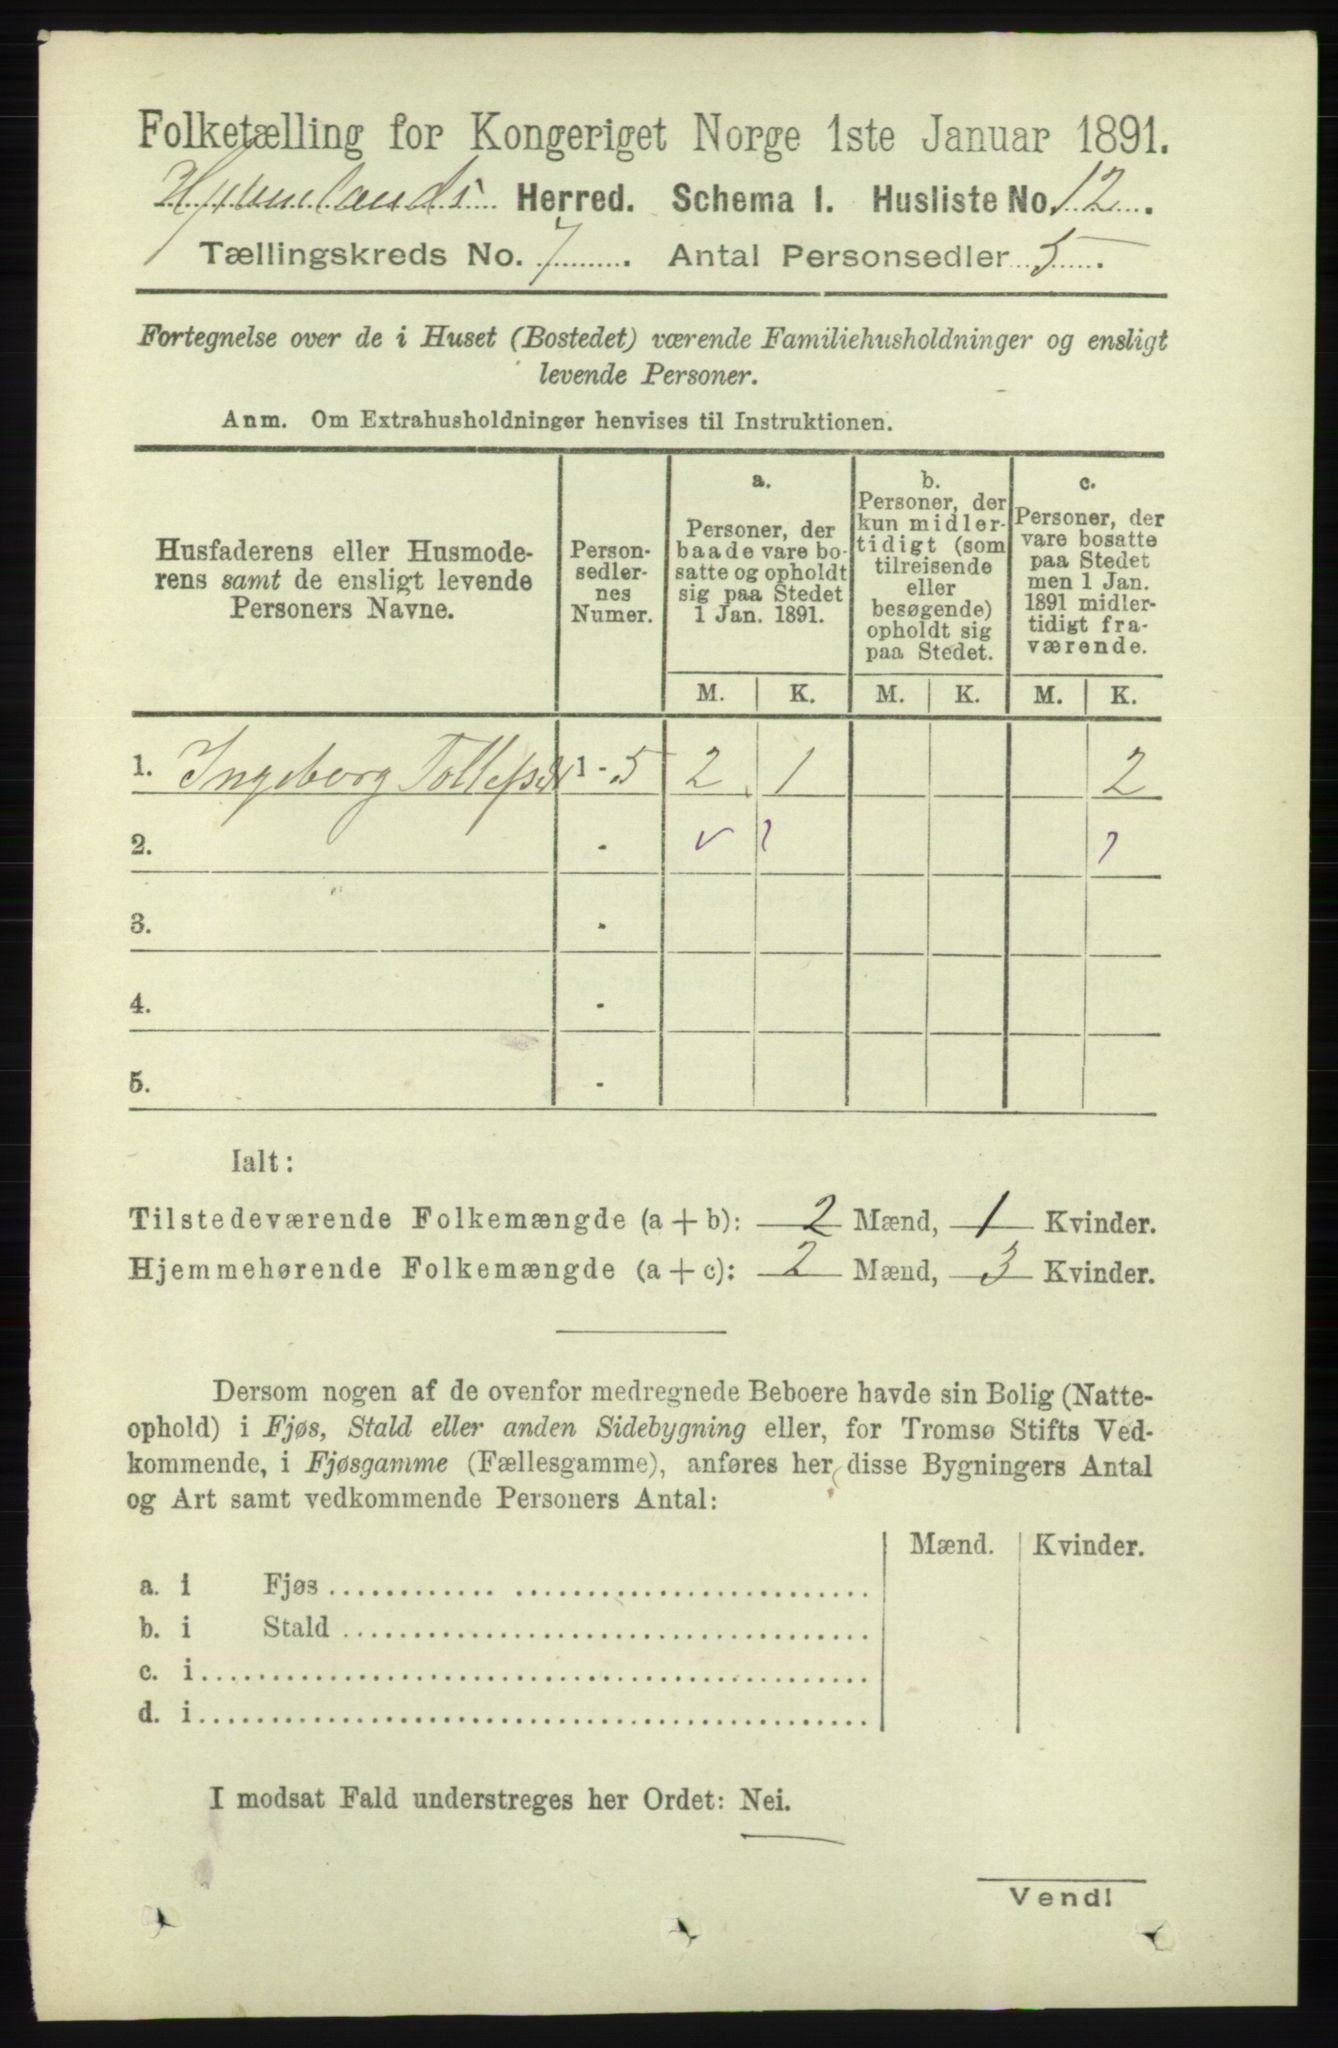 Folketælling for Kongeriget Norge 1ste Januar 1891.
Herred. Schema I. Husliste No. 12.
Tællingskreds No. 7. Antal Personsedler 5.
Fortegnelse over de i Huset (Bostedet) værende Familiehusholdninger og ensligt
levende Personer.
Anm. Om Extrahusholdninger henvises til Instruktionen.
Husfaderens eller Husmode-
rens samt de ensligt levende
Personers Navne.
Person-
sedler-
nes
Numer.
a.
Personer, der
baade vare bo-
satte og opholdt
sig paa Stedet
1 Jan. 1891.
b.
Personer, der
kun midler-
tidigt (som
tilreisende
eller
besøgende)
opholdt sig
paa Stedet.
c.
Personer, der
vare bosatte
paa Stedet
men 1 Jan.
1891 midler-
tidigt fra-
værende.
M. K. M. K. M. K.
1. Ingeborg Tollefsd 1 - 5 2 1 2
2. -
3. -
4. -
5. -
Ialt:
Tilstedeværende Folkemængde (a + b): 2 Mænd, 1 Kvinder.
Hjemmehørende Folkemængde (a + c): 2 Mænd, 3 Kvinder.
Dersom nogen af de ovenfor medregnede Beboere havde sin Bolig (Natte-
ophold) i Fjøs, Stald eller anden Sidebygning eller, for Tromsø Stifts Ved-
kommende, i Fjøsgamme (Fællesgamme), anføres her disse Bygningers Antal
og Art samt vedkommende Personers Antal:
Mænd. Kvinder.
a. i Fjøs
b. i Stald
c. i
d. i
I modsat Fald understreges her Ordet: Nei.
Vend!